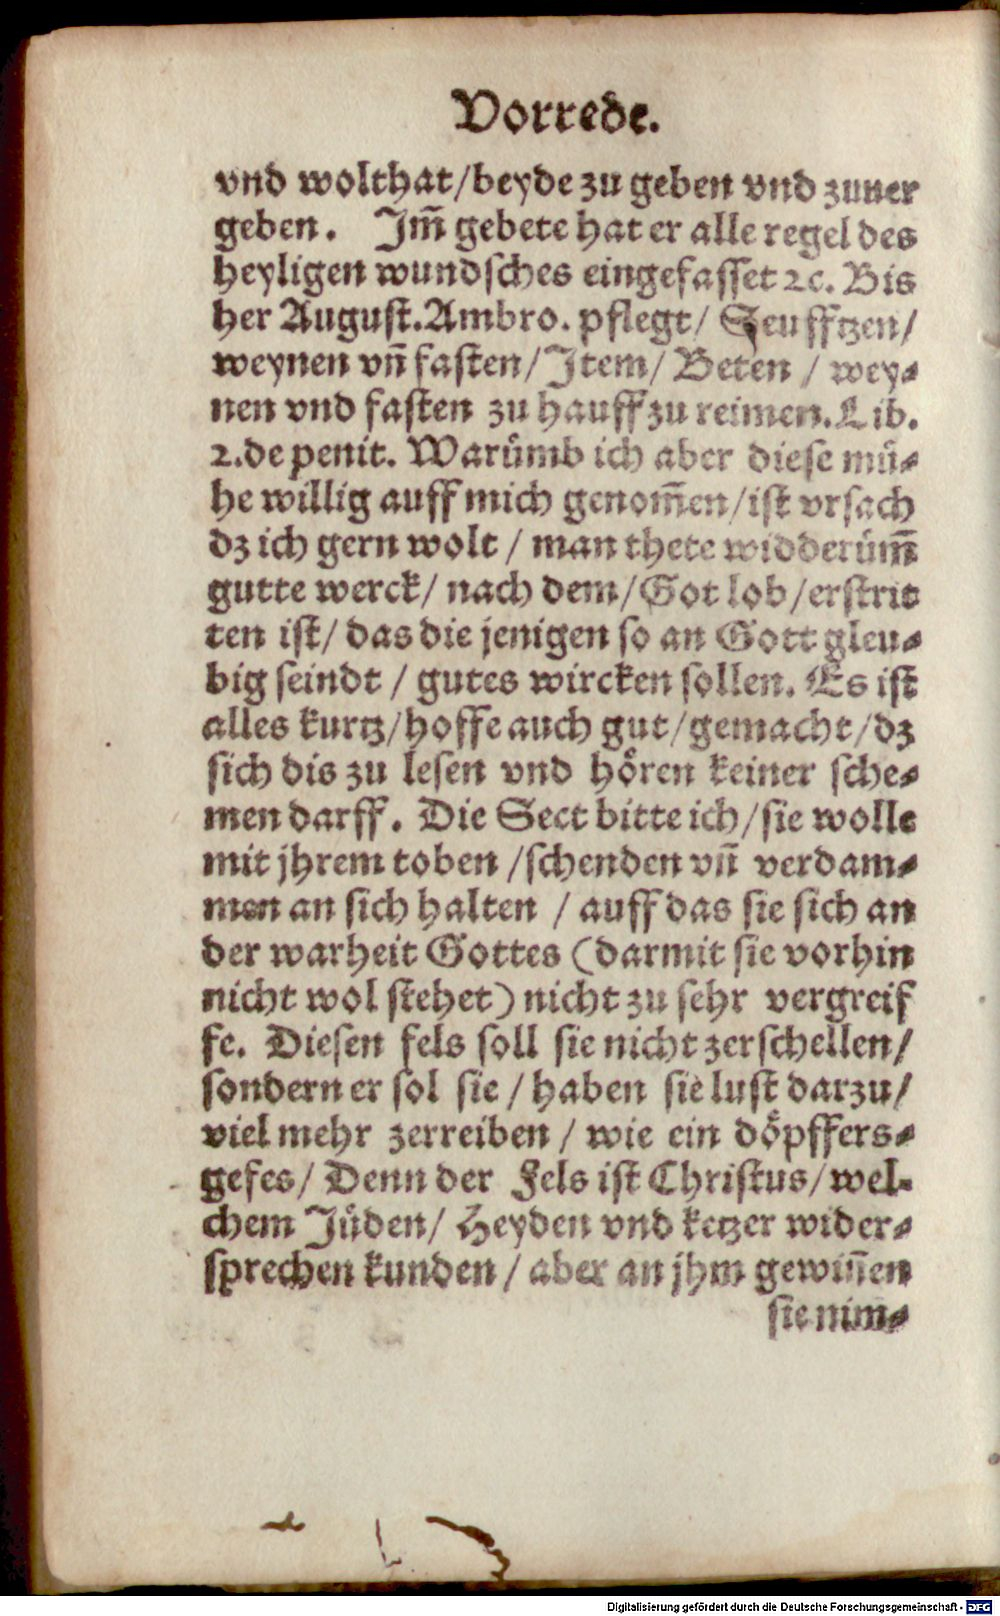 Vorrede.
vnd wolthat/beyde zu geben vnd zuuer
geben. Jm̃ gebete hat er alle regel des
heyligen wundsches eingefasset ꝛc. Bis
her August.Ambro. pflegt/ Seufftzen/
weynen vñ fasten/Jtem/ Beten / wey⸗
nen vnd fasten zu hauff zu reimen.Lib.
2.de penit. Warümb ich aber diese mü⸗
he willig auff mich genom̃en/ist vrsach
dz ich gern wolt / man thete widderüm̃
gutte werck/ nach dem/Got lob/erstrit
ten ist/ das die jenigen so an Gott gleu⸗
big seindt / gutes wircken sollen. Es ist
alles kurtz/hoffe auch gut/gemacht/dz
sich dis zu lesen vnd hören keiner sche⸗
men darff. Die Sect bitte ich/sie wolle
mit jhrem toben /schenden vñ verdam⸗
men an sich halten / auff das sie sich an
der warheit Gottes (darmit sie vorhin
nicht wol stehet) nicht zu sehr vergreif
fe. Diesen fels soll sie nicht zerschellen/
sondern er sol sie / haben sie lust darzu/
viel mehr zerreiben / wie ein döpffers⸗
gefes/ Denn der Fels ist Christus/ wel⸗
chem Jüden/ Heyden vnd ketzer wider⸗
sprechen kunden / aber an jhm gewiñen
sie nim⸗
Digitalisierung gefördert durch die Deutsche Forschungsgemeinschaft - DFG